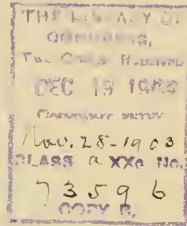 THE LIBRARY OF
CONGRESS,
Two Copies Received
DEC 19 1903
Copyright Entry
Nov. 28-1903
CLASS a XXc. No.
73596
COPY B.